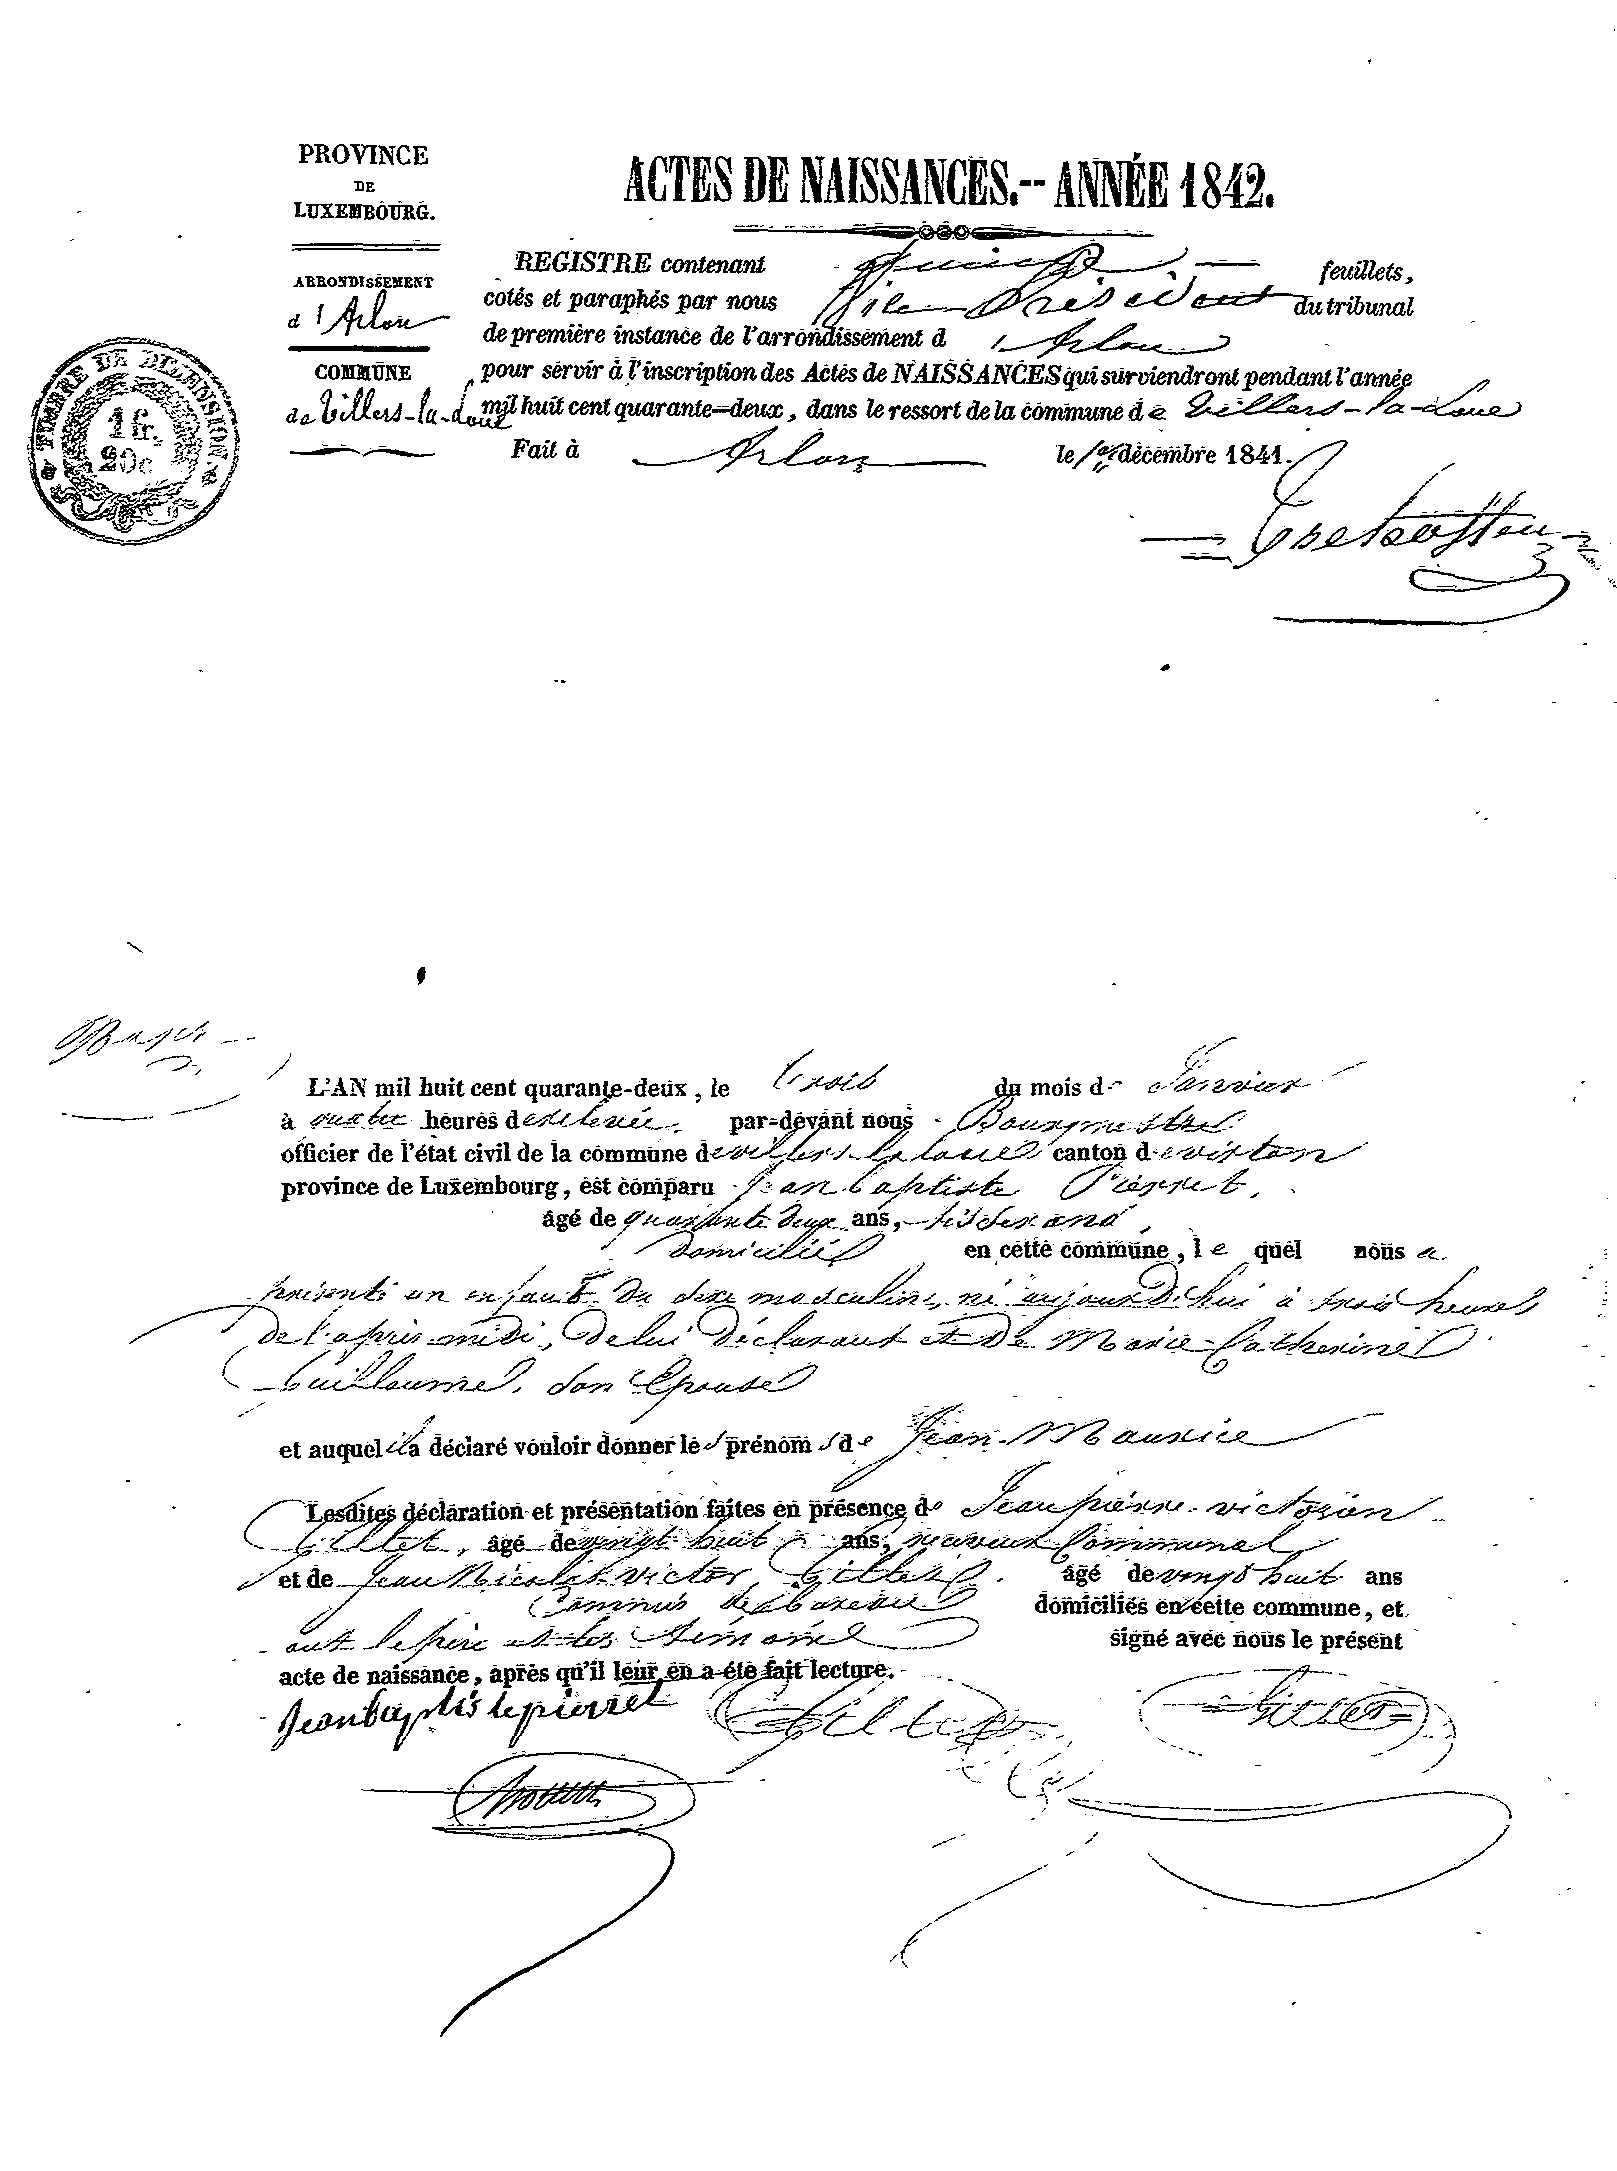 PROVINCE
DE
LUXEMBOURG.
ARRONDISSEMENT
d'Arlon
COMMUNE
de Villers-la-Loue
TIMBRE DE DIMENSION
1 fr.
20c
ACTES DE NAISSANCES.-- ANNÉE 1842.
REGISTRE contenant feuillets,
cotés et paraphés par nous Président du tribunal
de première instance de l'arrondissement d'Arlon
pour servir à l'inscription des Actes de NAISSANCES qui surviendront pendant l'année
mil huit cent quarante-deux, dans le ressort de la commune de Villers-la-Loue
Fait à Arlon le 1er décembre 1841.
L'AN mil huit cent quarante-deux, le trois du mois de Janvier
à quatre heures de relevée, par-devant nous Bourgmestre
officier de l'état civil de la commune de villers-la-loue canton de virton
province de Luxembourg, est comparu Jean Baptiste Pierret,
âgé de quarante deux ans, tisserand,
domicilié en cette commune, lequel nous a
présenté un enfant du sexe masculin, né aujourd'hui à trois heures
de l'après midi, de lui déclarant et de Marie-Catherine
Guillaume, son Epouse
et auquel il a déclaré vouloir donner les prénoms de Jean-Maurice
Lesdites déclaration et présentation faites en présence de Jean pierre victorien
Gillet, âgé de vingt huit ans, receveur Communal
et de Jean Nicolas victor Gillet, âgé de vingt huit ans
Commis de domiciliés en cette commune, et
ont le père et les témoins signé avec nous le présent
acte de naissance, après qu'il leur en a été fait lecture.
Jean baptiste pierret Gillet Gillet